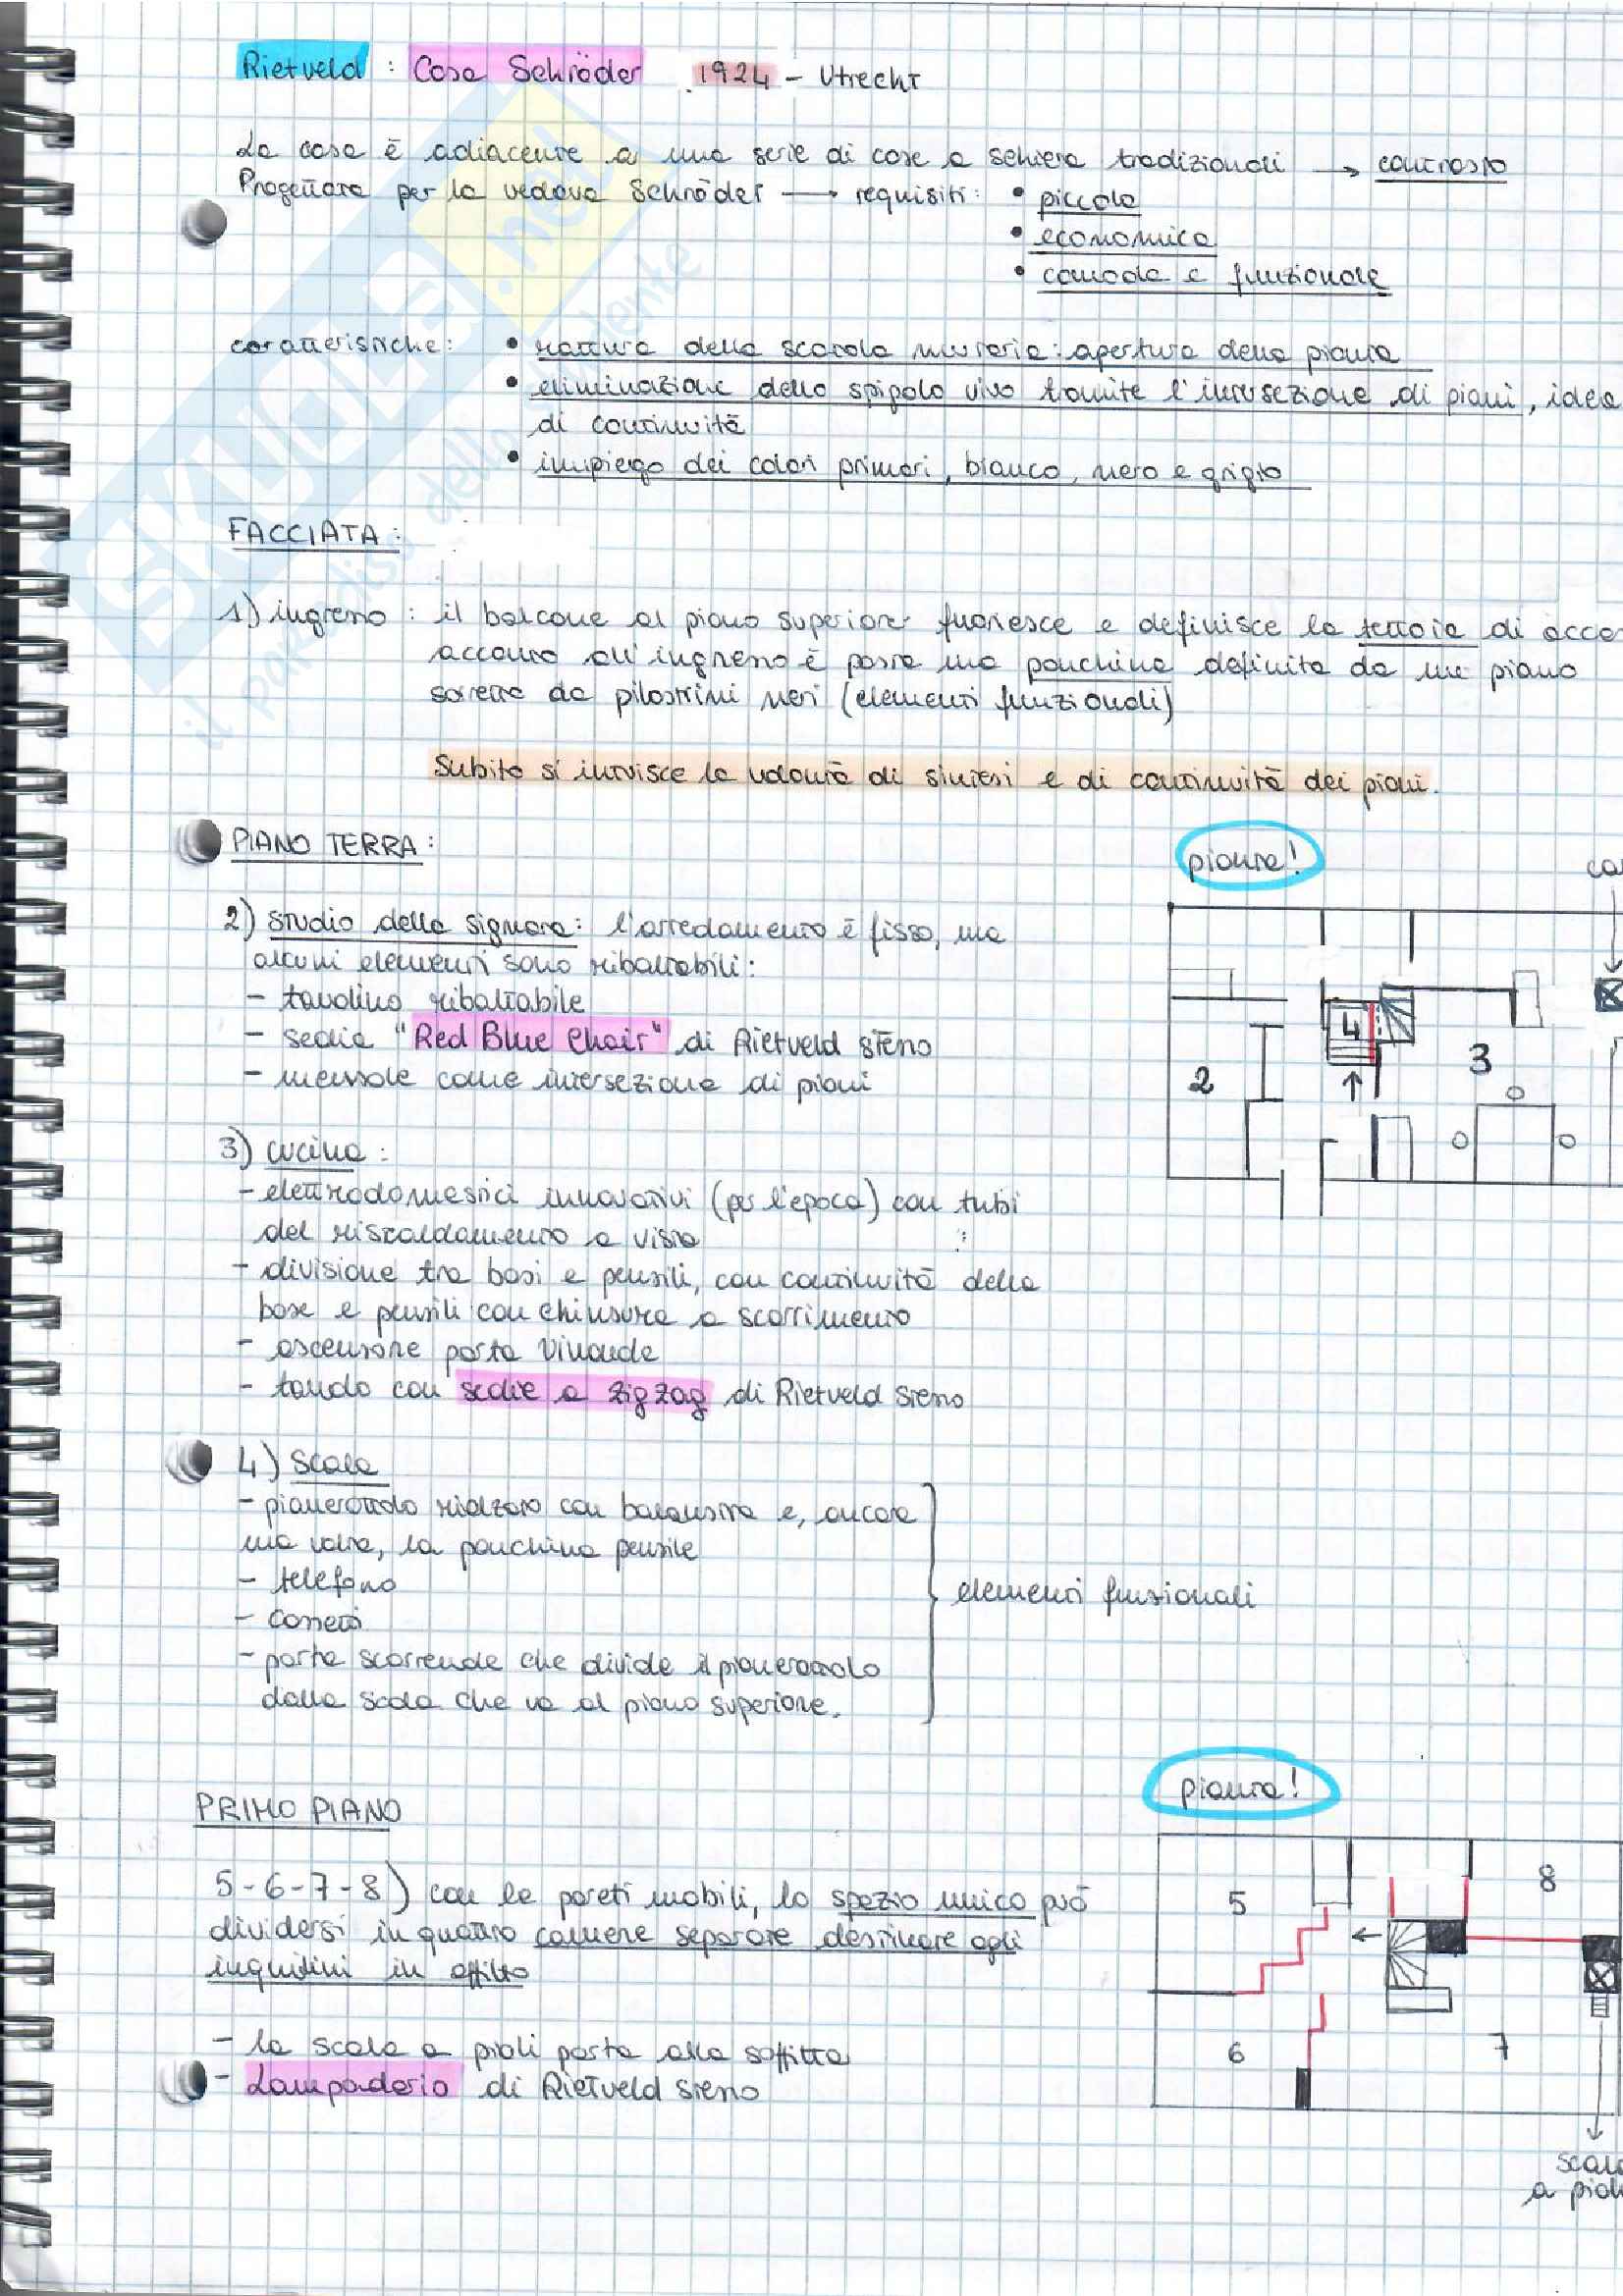 Rietveld : Casa Schröder 1924 - Utrecht
La casa è adiacente a una serie di case a schiera tradizionali → contrasto
Progettata per la vedova Schröder → requisiti: • piccola
• economica
• comoda e funzionale
caratteristiche: • rottura della scatola muraria: apertura della pianta
• eliminazione dello spigolo vivo tramite l'intersezione di piani, idea
di continuità
• impiego dei colori primari, bianco, nero e grigio
FACCIATA:
1) ingresso: il balcone al piano superiore fuoriesce e definisce la tettoia di acce
accanto all'ingresso è posta una panchina definita da un piano
sorretta da pilastrini neri (elementi funzionali)
Subito si intuisce la volontà di sintesi e di continuità dei piani.
PIANO TERRA:
pianta!
ca
2) studio della signora: l'arredamento è fisso, ma
alcuni elementi sono ribaltabili:
- tavolino ribaltabile
- sedia "Red Blue Chair" di Rietveld stesso
- mensole come intersezione di piani
4
3
2
3) cucina:
- elettrodomestici innovativi (per l'epoca) con tubi
del riscaldamento a vista
- divisione tra basi e pensili, con continuità della
base e pensili con chiusura a scorrimento
- ascensore porta vivande
- tavolo con sedie a zigzag di Rietveld stesso
4) Scala
- pianerottolo rialzato con balaustra e, ancora
una volta, la panchina pensile
- telefono
- cassetti
- porta scorrevole che divide il pianerottolo
dalla scala che va al piano superiore.
elementi funzionali
pianta!
PRIMO PIANO
5-6-7-8) con le pareti mobili, lo spazio unico può
dividersi in quattro camere separate destinate agli
inquilini in affitto
5
8
6
7
- la scala a pioli porta alla soffitta
- Lampadario di Rietveld stesso
scala
a pioli
SKUOLA.net
il paradiso dello studente